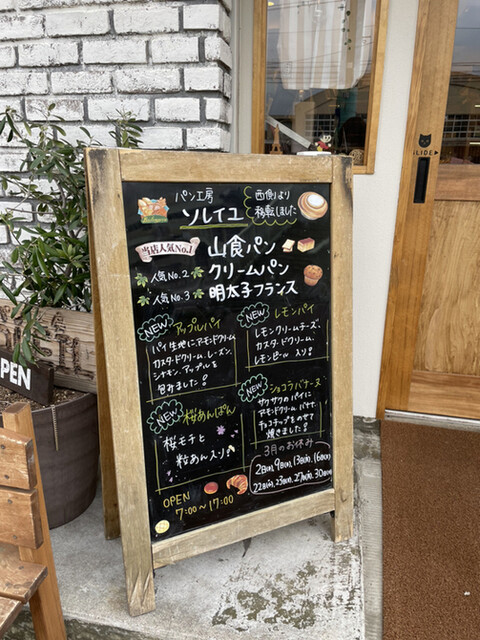 パン工房
ソレイユ
西側より
移転しました
当店人気No.1
山食パン
人気No.2
クリームパン
人気No.3
明太子フランス
NEW
アップルパイ
パイ生地にアーモンドクリーム
カスタードクリーム、レーズン、
シナモン、アップルを
包みました!
NEW
レモンパイ
レモンクリームチーズ、
カスタードクリーム、
レモンピール入り!
NEW
桜あんぱん
桜モチと
粒あん入り
NEW
ショコラバナーヌ
サクサクのパイに
アーモンドクリーム、バナナ、
チョコチップをのせて
焼きました!
3月のお休み
OPEN
7:00~17:00
SLIDE
OPEN